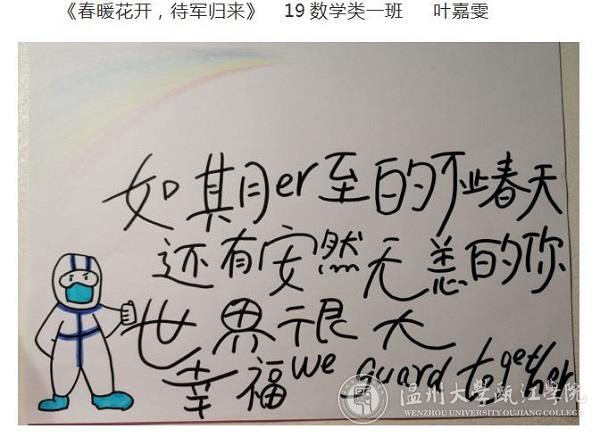 《春暖花开，待军归来》 19 数学类一班 叶嘉雯
如期er至的不止春天
还有安然无恙的你
世界很大
幸福we guard together
温州大学瓯江学院
WENZHOU UNIVERSITY OUJIANG COLLEGE